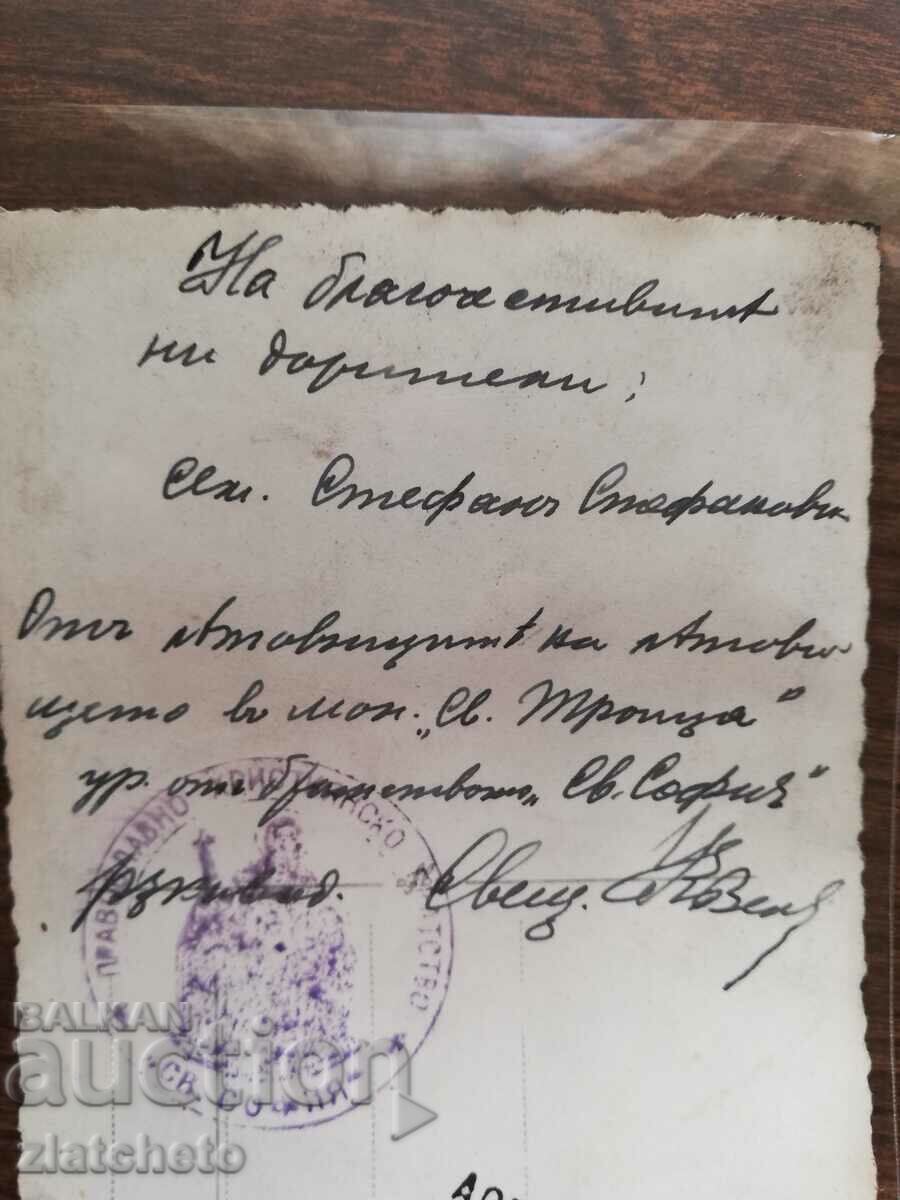 На благочестивитѣ
ни дарители:
сем. Стефанъ Стефанови
Отъ лѣтовницитѣ на лѣтови
щето въ мон. „Св. Троица"
ур. отъ братството „Св. София"
Ржковод. Свещ.
ПРАВОСЛАВНО ХРИСТИЯНСКО БРАТСТВО
СВ. СОФИЯ
BALKAN
auction
zlatcheto